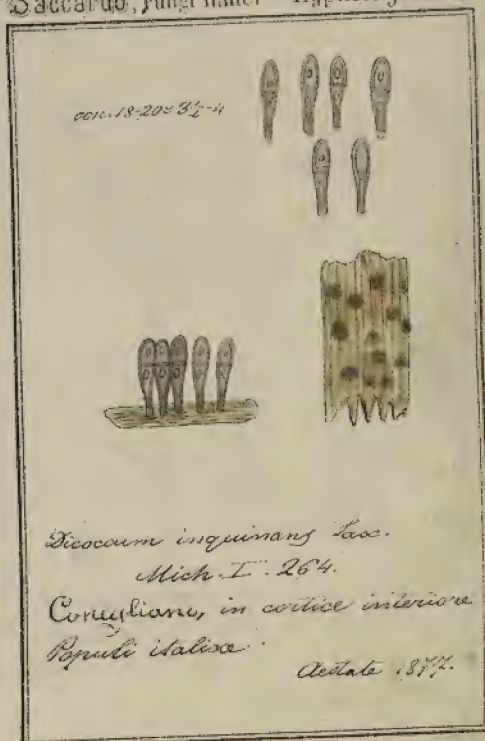 Saccardo, Fungi
con. 18-20 = 3½-4
Dicoccum inquinans Sacc.
Mich. I. 264.
Conegliano, in cortice interiore
Populi italicæ.
Aestate 1877.